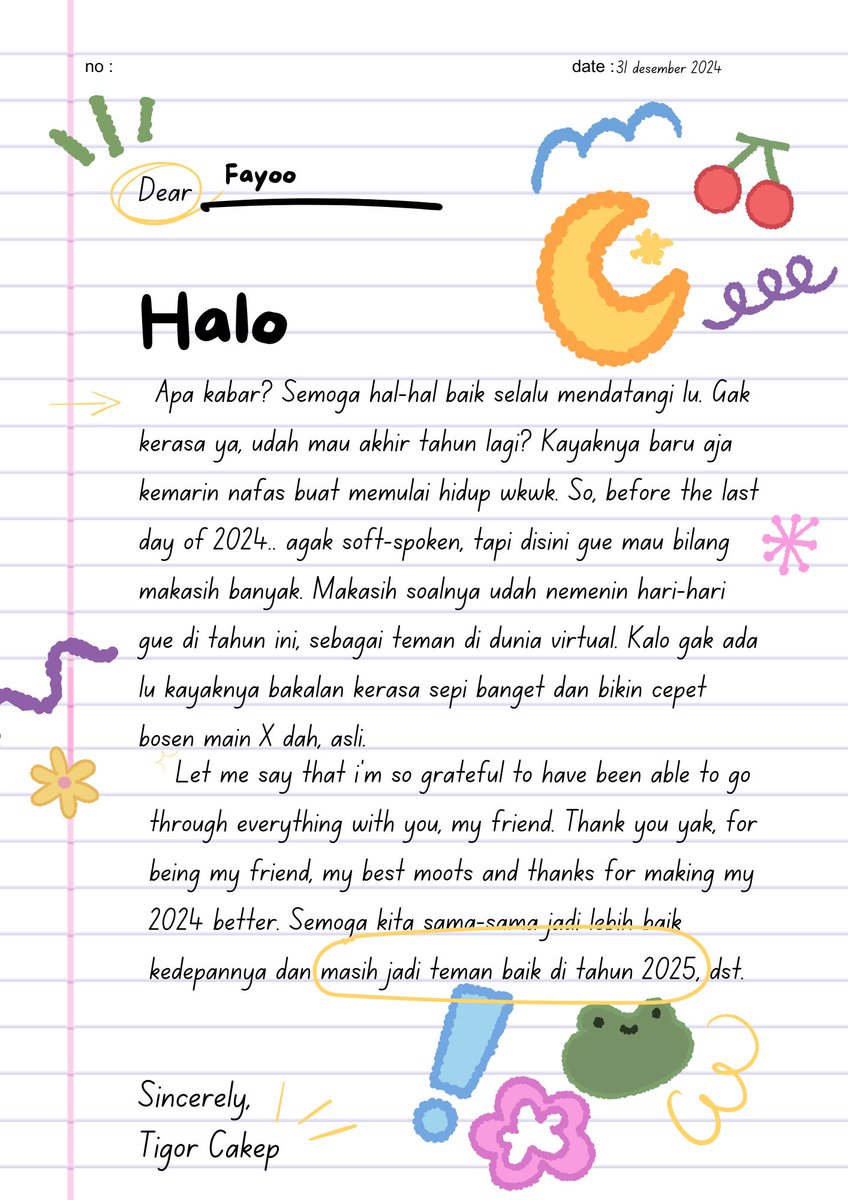 no :
date : 31 desember 2024
Dear Fayoo
Halo
Apa kabar? Semoga hal-hal baik selalu mendatangi lu. Gak
kerasa ya, udah mau akhir tahun lagi? Kayaknya baru aja
kemarin nafas buat memulai hidup wkwk. So, before the last
day of 2024.. agak soft-spoken, tapi disini gue mau bilang
makasih banyak. Makasih soalnya udah nemenin hari-hari
gue di tahun ini, sebagai teman di dunia virtual. Kalo gak ada
lu kayaknya bakalan kerasa sepi banget dan bikin cepet
bosen main X dah, asli.
Let me say that i'm so grateful to have been able to go
through everything with you, my friend. Thank you yak, for
being my friend, my best moots and thanks for making my
2024 better. Semoga kita sama-sama jadi lebih baik
kedepannya dan masih jadi teman baik di tahun 2025, dst.
Sincerely,
Tigor Cakep